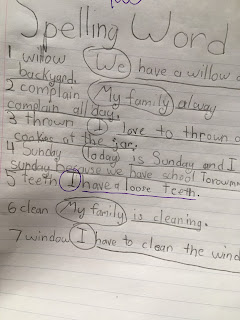 Spelling Word
1 willow We have a willow
backyard.
2 complain My family alway
complain all day.
3 thrown I love to thrown
cookies at the jar.
4 Sunday today is Sunday and I
sunday because we have school
5 teeth I have a loose teeth.
6 clean My family is cleaning.
7 window I have to clean the wind